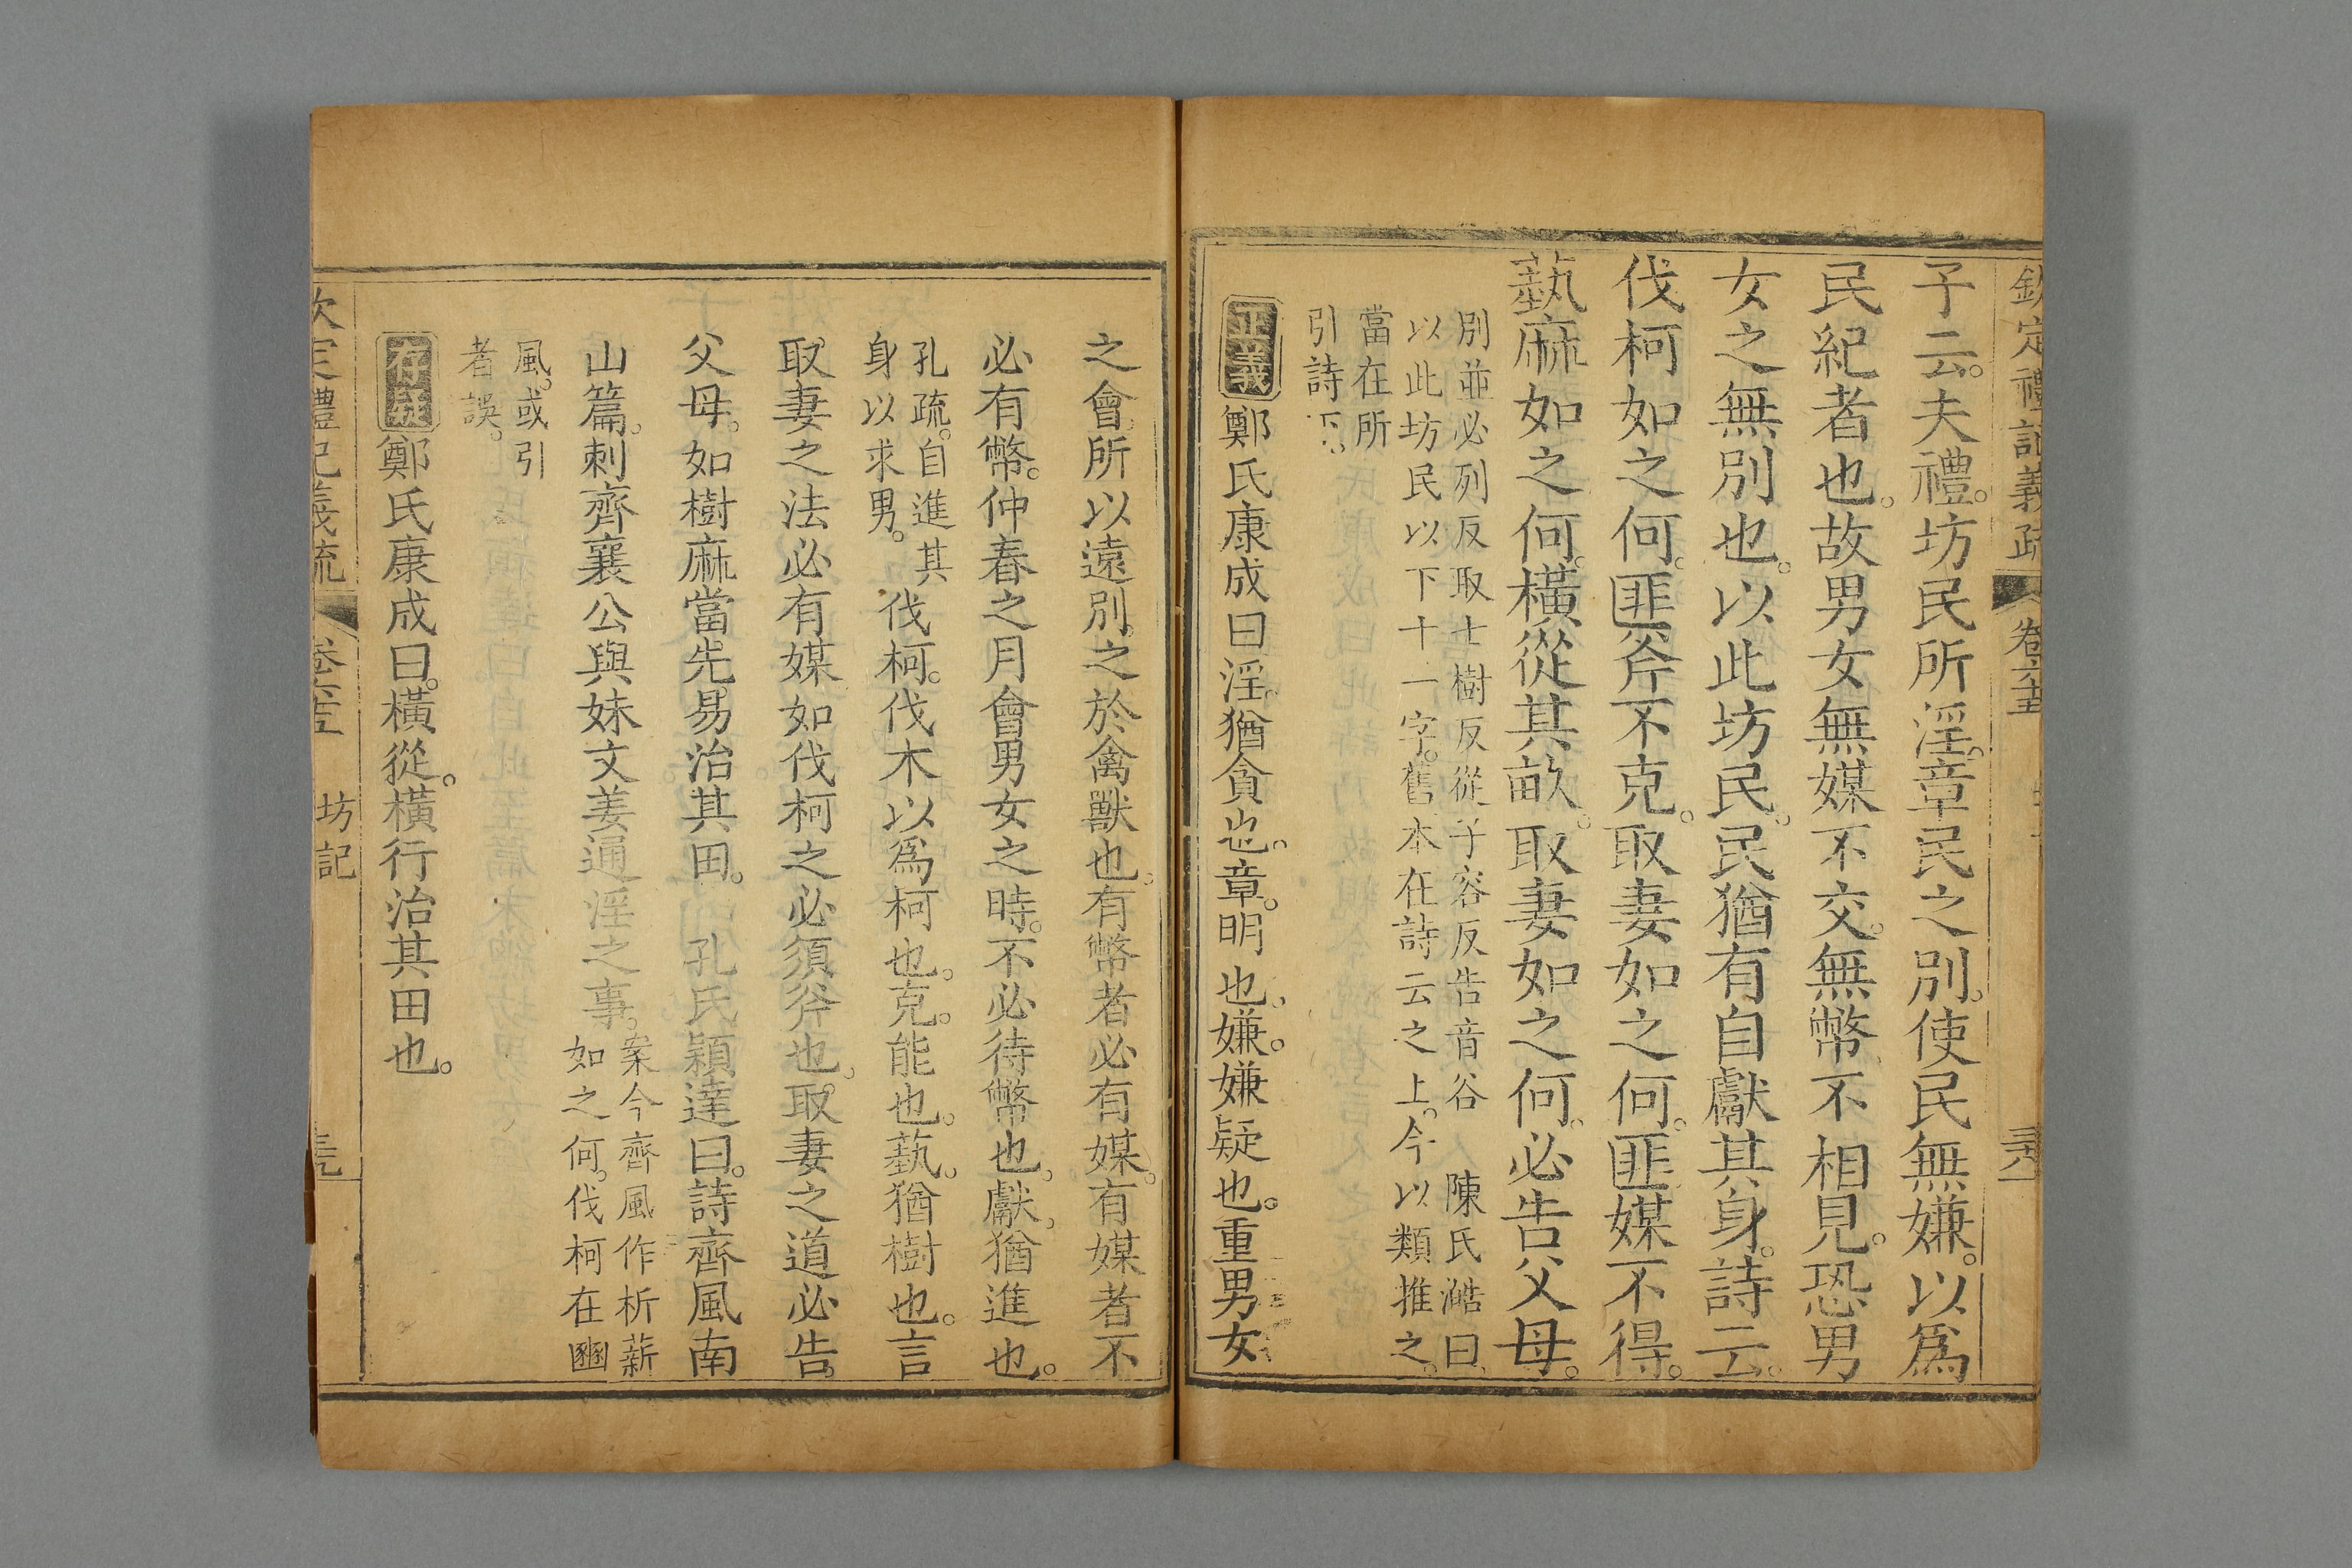 欽定禮記義疏 卷六十五
子云。夫禮。坊民所淫。章民之別。使民無嫌。以爲
民紀者也。故男女無媒不交。無幣不相見。恐男
女之無別也。以此坊民。民猶有自獻其身。詩云。
伐柯如之何。匪斧不克。取妻如之何。匪媒不得。
蓺麻如之何。橫從其畝。取妻如之何。必告父母。
別並必列反取七樹反從子容反告音谷 陳氏澔曰
以此坊民以下十一字。舊本在詩云之上。今以類推之。
當在所
引詩下。
正義 鄭氏康成曰淫。猶貪也。章。明也。嫌。嫌疑也。重男女
之會。所以遠別之於禽獸也。有幣者必有媒。有媒者不
必有幣。仲春之月會男女之時。不必待幣也。獻。猶進也。
孔疏。自進其
身以求男。
伐柯。伐木以爲柯也。克。能也。蓺。猶樹也。言
取妻之法必有媒如伐柯之必須斧也。取妻之道必告
父母。如樹麻當先易治其田。 孔氏穎達曰。詩齊風南
山篇。刺齊襄公與妹文姜通淫之事。
案今齊風作析薪
如之何。伐柯在豳
風。或引
者誤。
存疑 鄭氏康成曰。橫從。橫行治其田也。
欽定禮記義疏 卷六十五 坊記